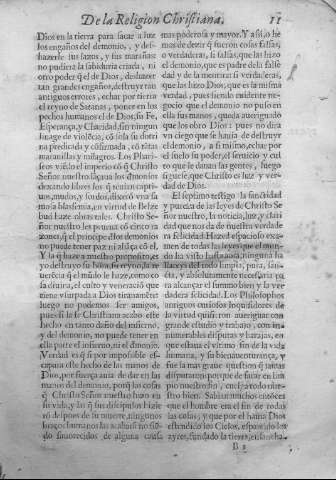 De la Religion Christiana. 11
Dios en la tierra para sacar a luz
los engaños del demonio, y des-
hazerle sus lazos, y sus marañas
no pudiera la sabiduria criada, ni
otro poder q̃ el de Dios, deshazer
tan grandes engaños, destruyr tan
antiguos errores, echar por tierra
el reyno de Satanas, poner en los
pechos humanos el de Dios, su Fe,
Esperança, y Claridad, sin ningun
linage de violẽcia, cõ sola su doctri
na predicada y cõfirmada, cõ tãtas
marauillas y milagros. Los Phari-
seos viẽdo el imperio cõ q̃ Christo
Señor nuestro lançaua los demonios
dexando libres los q̃ tenian capti-
mudos, y sordos, dixerõ era
la blasfemia, en virtud de Belze
bud haze obras tales. Christo Se-
ñor nuestro los prueua cõ cinco ra
zones, q̃ el principe destos demonios
no puede tener paz ni aliãça cõ el,
Y la q̃ haze a nuestro proposito, es
yo destruyo su reyno, la
uerẽcia q̃ el mũdo le haze, como es
la el culto y veneració que
tiene vsurpada a Dios tiranamente
luego no podemos ser amigos,
pues si la fe Christiana acabo este
hecho en tanto daño del infierno,
y del demonio, no puede tener en
ella parte el infierno, ni el demonio.
Verdad es q̃ si por impossible es-
capara este hecho de las manos de
Dios, por fuerça auia de dar en las
manos del demonio, porq̃ las cosas
q̃ Christo Señor nuestro hizo en
su vida, y las q̃ sus discipulos hizie
rõ despues de su muerte, ningunos
braços humanos las acabarã no siẽ-
do fauorecidos de alguna causa
mas poderosa y mayor. Y assi, o he
mos de dezir q̃ fueron cosas falsas,
o verdaderas, si falsas, que las hizo
el demonio, que es padre de la false
dad y de la mentara si verdaderas,
que las hizo Dios, que es la misma
verdad, pues siendo euidente ne-
gocio que el demonio no puso en
ella sus manos, queda aueriguado
que los obro Dios: pues no dira
vn ciego que se hauia de destruyr
el demonio, a si mismo, echar por
el suelo su poder, el seruicio y cul
to que le dauan las gentes, luego
si guese, que Christo es luz y ver-
dad de Dios.
El septimo testigo la sanctidad
y pureza de las leyes de Christo Se
ñor nuestro, la noticia, luz, y clari-
dad que nos da de nuestra verdade
ra felicidad. Hazed espacioso exa-
men de todas las leyes que el mun-
do ha visto hasta aora, ninguna ha
llareys del todo limpia, pura, san-
cta, y absolutamente necessaria pa
ra alcançar el summo bien y la ver
dadera felicidad. Los Philosophos
antiguos curiosos Inquisidores de
la virtud quisieron aueriguar con
grande estudio y trabajo, con in-
numerables disputas y barajas, en
que estaua el vltimo fin de la vida
humana, y su bienauenturança, y
fue la mas graue question q̃ tantas
disputaron porque de faltar en
pio nuestro fin, euclatodo nue-
stro bien. Sabian muchos entõces
que el hombre era el fin de todas
las cosas, y que por el hauia Dios
estendido los Cielos, espaziado los
ayres, fundado la tierra, ensancha-
B 3